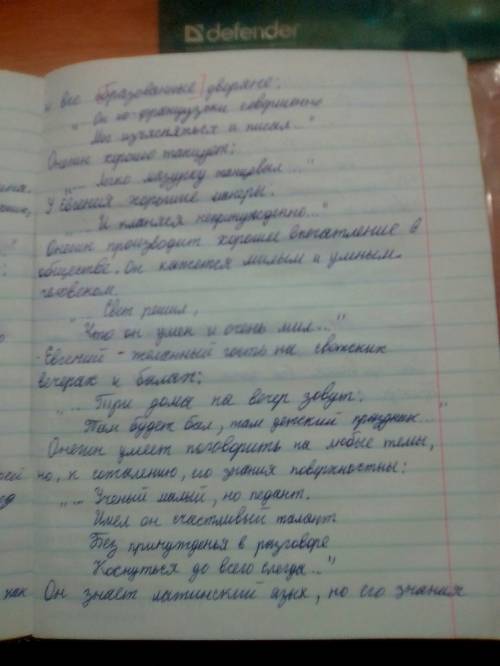 defender
и все образованные дворяне:
"Он по-французски совершенно
Мог изъясняться и писал..."
Онегин хорошо танцует:
"... Легко мазурку танцевал..."
У Евгения хорошие манеры:
"И кланялся непринужденно..."
Онегин производит хорошее впечатление в
обществе. Он кажется милым и умным
человеком.
"... Свет решил,
Что он умен и очень мил..."
Евгений - желанный гость на светских
вечерах и балах:
"... Три дома на вечер зовут:
Там будет бал, там детский праздник..."
Онегин умеет поговорить на любые темы,
но, к сожалению, его знания поверхностны:
"... Ученый малый, но педант.
Имел он счастливый талант
Без принужденья в разговоре
Коснуться до всего слегка..."
Он знает латинский язык, но его знания
как